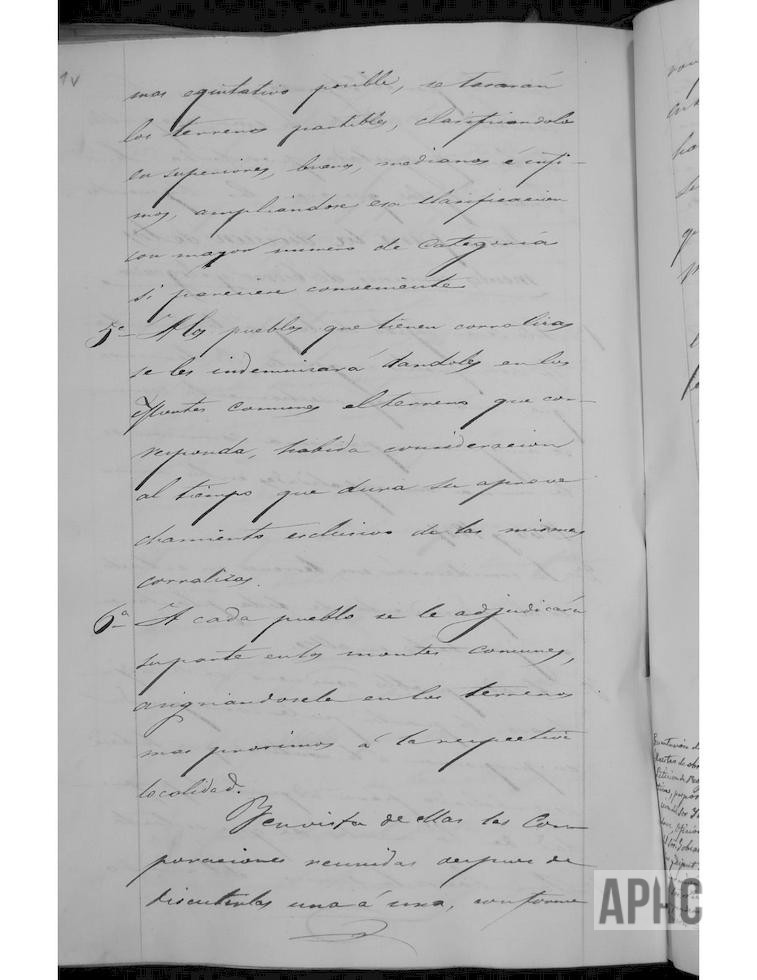 1v
mas equitativo posible, se tasarán
los terrenos partibles, clasificandolos
en superiores, buenos, medianos é infi-
mos, ampliándose esa clasificacion
con mayor número de categoria
si pareciere conveniente
5ª A los pueblos que tienen corralizas
se les indemnizará dandoles en los
Montes comunes el terreno que cor-
responda, habida consideracion
al tiempo que dura su aprove
chamiento esclusivo de las mismas
corralizas.
6ª A cada pueblo se le adjudicará
su parte en los montes comunes,
asignandosele en los terrenos
mas procsimos á la respectiva
localidad.
Y en vista de ellas las Cor-
poraciones reunidas despues de
discutirlas una á una, conforme
APHC